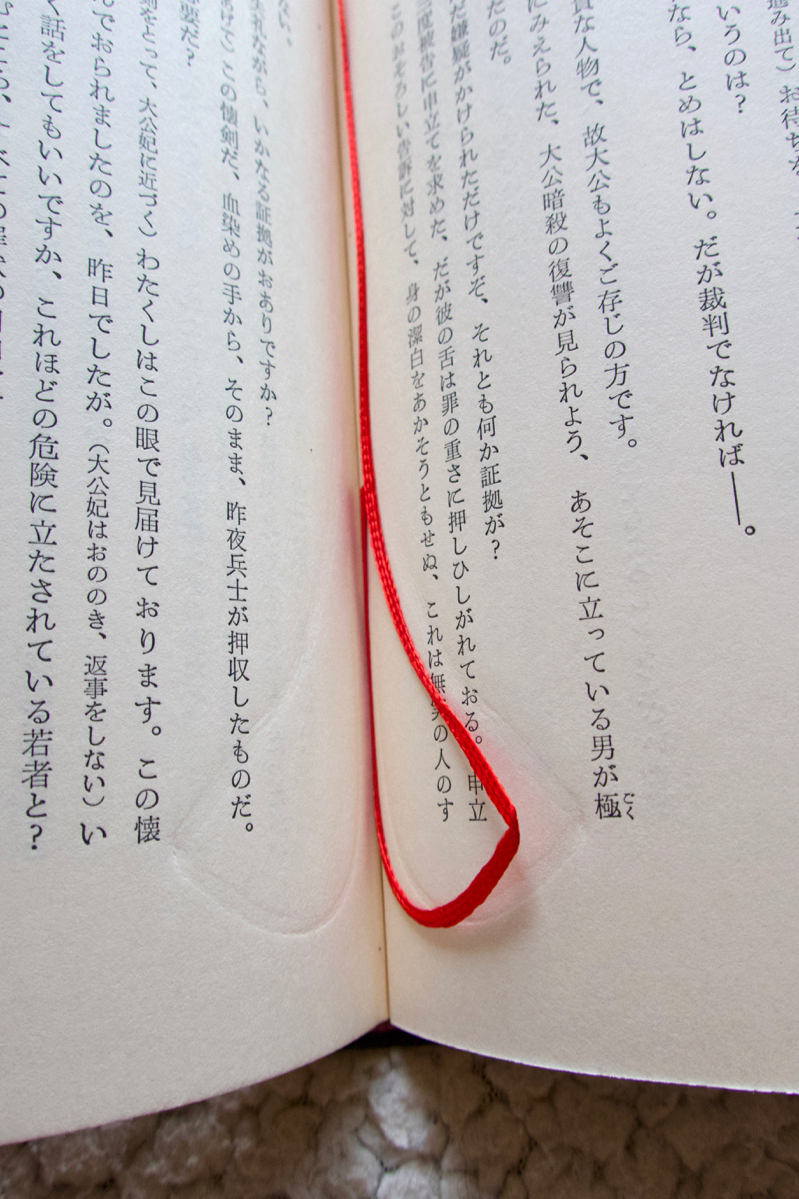 み出て）お待ちを
いうのは？
なら、とめはしない。だが裁判でなければ――。
貴な人物で、故大公もよくご存じの方です。
にみえられた、大公暗殺の復讐が見られよう、あそこに立っている男が極ごく
たのだ。
だ嫌疑がかけられただけですぞ、それとも何か証拠が？
三度被告に申立てを求めた、だが彼の舌は罪の重さに押しひしがれておる。申立
このおそろしい告訴に対して、身の潔白をあかそうともせぬ、これは無実の人のす
ない。
失礼ながら、いかなる証拠がおありですか？
あげて）この懐剣だ、血染めの手から、そのまま、昨夜兵士が押収したものだ。
要だ？
剣をとって、大公妃に近づく）わたくしはこの眼で見届けております。この懐
んでおられましたのを、昨日でしたが。（大公妃はおののき、返事をしない）い
く話をしてもいいですか、これほどの危険に立たされている若者と？